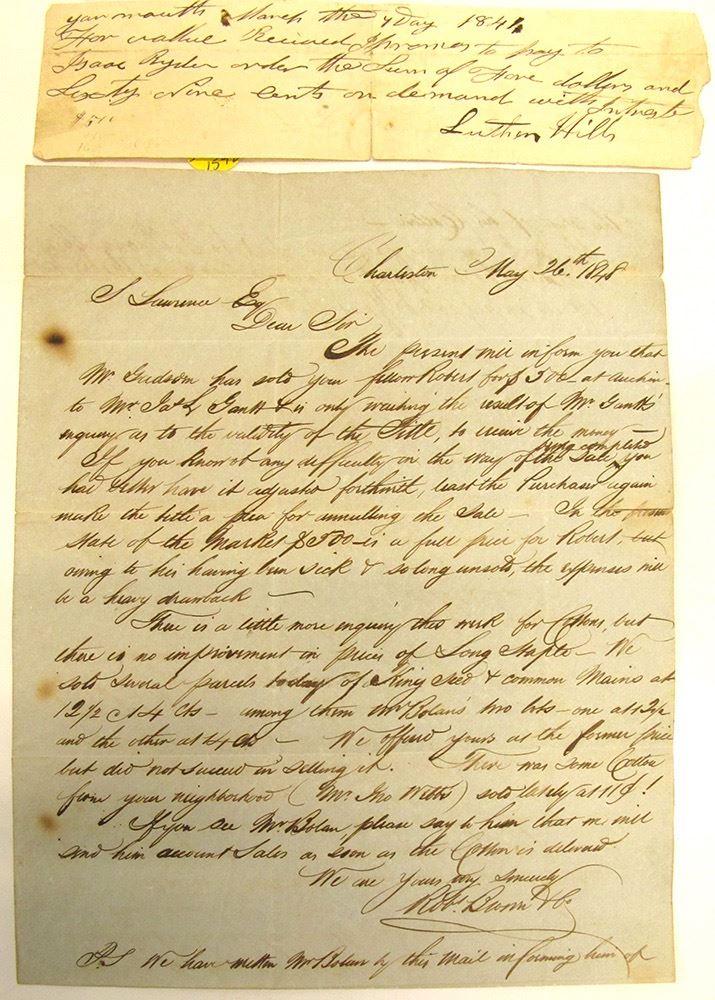 Yarmouth March the 4 Day 1841
For vallue Received I promes to pay to
Isaac Ryder order the Sum of Fore dollers and
Sixty Nine cents on demand with Intrest
Luther Hills
Charleston May 26.th 1848
J Lawrence Esq
Dear Sir
The present will inform you that
Mr. has sold your fellow Robert for $500 at auction
to Mr. Jas L Gantt & is only waiting the result of Mr Gantts
enquiry as to the validity of the Title, to receive the money —
If you know of any difficulty in the way of the Sale being completed you
had better have it adjusted forthwith, least the Purchaser again
make the title a plea for annulling the Sale — In the present
State of the Market $500 is a full price for Robert, but
owing to his having been Sick & so long unsold, the expenses will
be a heavy drawback —
There is a little more enquiry this week for Cottons, but
there is no improvement in prices of Long Staple — We
sold several parcels today of King Seed & common Mains at
12 1/2 @ 14 Cts — among them Mr Bolans two lots — one at 12 1/2
and the other at 14 Cts — We offered yours at the former price
but did not succeed in selling it. There was some Cotton
from your neighborhood (Mr. Jno Witte) sold lately at 11¢!
If you see Mr. Bolan, please say to him that we will
send him account Sales as soon as the Cotton is delivered
We are yours very sincerely
Robt. & Co
PS We have written Mr Bolan by this Mail informing him of